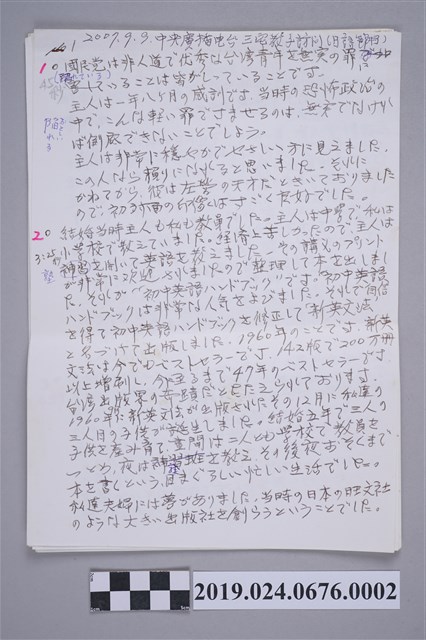 2007.9.9. 中央廣播電台 三宅教子訪問(日語部門)
1. 國民党は非人道で優秀な台湾青年を無実の罪で
害していることは分かっていることです。
主人は一年八ヶ月の感訓です。当時の恐怖政治の
中で、こんな軽い罪ですませるのは、無実でなけれ
ば到底できないことでしょう。
主人は非常に穏やかでやさしい方に見えました。
この人なら頼りになれると思いました。それに
かねてから、彼は左営の天才だときいておりました
ので、初対面の印象はすごく良好でした。
2. 結婚当時主人も私も教師でした。主人は中学で、私は
小学校で教えていました。経済上苦しかったので、主人は
補習を開いて英語を教えました。その講義のプリント
が非常に歓迎されましたので整理して本を出しまし
た。それが"初中英語ハンドブック"です。初中英語
ハンドブックは非常な人気をよびました。それで自信
を得て初中英語ハンドブックを修正して「新英文法」
と名づけて出版しました。1960年のことです。新英
文法は今でもベストセラーです。142版で200万冊
以上増刷し、今に至るまで47年のベストセラーです。
台湾出版界の奇蹟だとたたえられております。
1960年に新英文法が出版されたその12月に私達の
三人目の子供が誕生しました。結婚五年で三人の
子供を産み育て、昼間は二人とも学校で教員を
つとめ、夜は補習班を教え、その後夜おそくまで
本を書くという目まぐるしい忙しい生活でした。
私達夫婦には夢がありました。当時の日本の旺文社
のような大きい出版社を創ろうということでした。
45秒
陥れる
3:25秒
塾
塾
2019.024.0676.0002